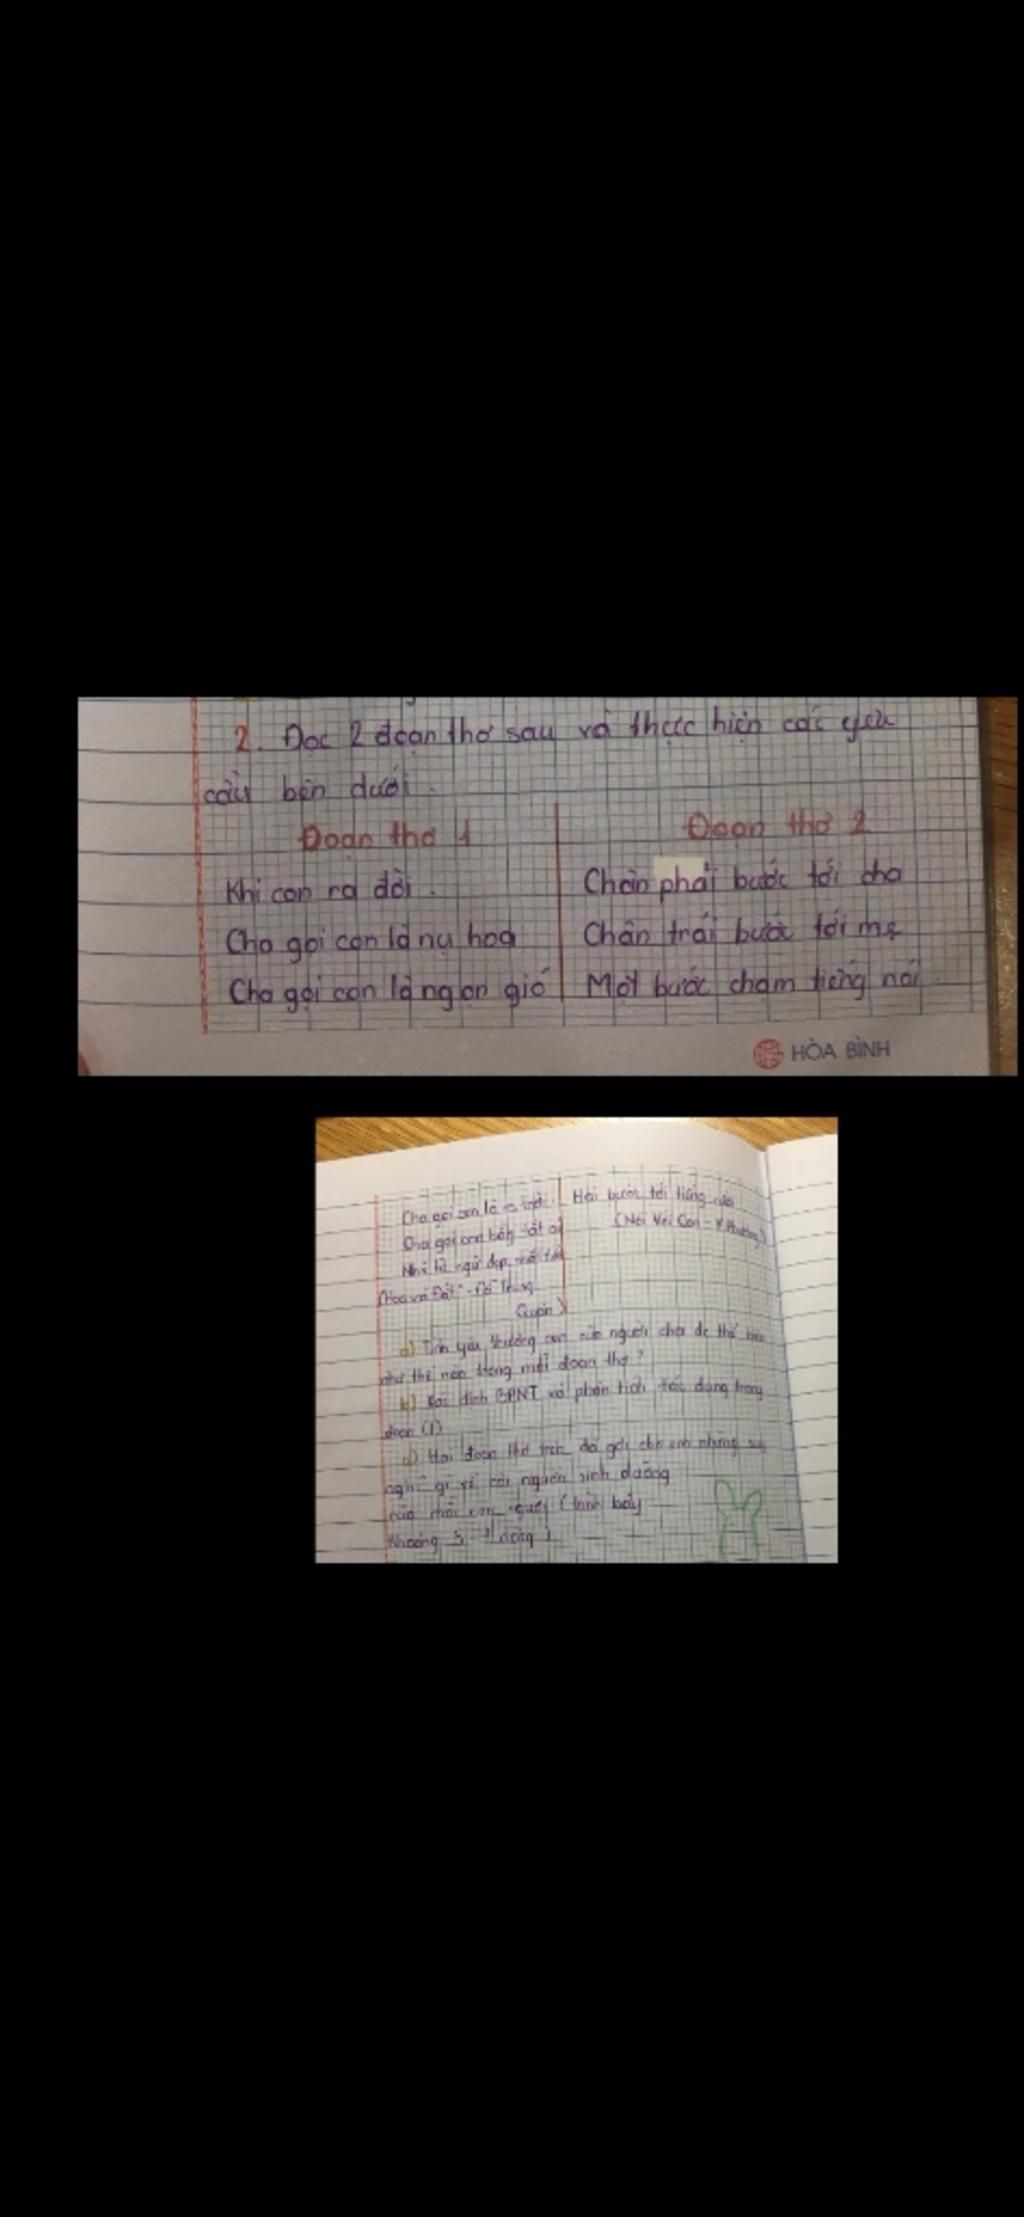 2. Đọc 2 đoạn thơ sau và thực hiện các yêu
cầu bên dưới.
Đoạn thơ 1
Khi con ra đời.
Cha gọi con là nụ hoa
Cha gọi con là ngọn gió
Đoạn thơ 2
Chân phải bước tới cha
Chân trái bước tới mẹ
Một bước chạm tiếng nói
HÒA BÌNH
Cha gọi con là
Cha gọi con bằng tất cả
Những từ ngữ đẹp nhất
(Hoa và Đất -
Quân)
Hai bước tới tiếng
(Nói Với Con - Y Phương)
a) Tình yêu thương con của người cha đc thể hiện
như thế nào trong mỗi đoạn thơ?
b) Xác định BPNT và phân tích tác dụng trong
đoạn (1)
c) Hai đoạn thơ trên đã gợi cho em những suy
nghĩ gì về cội nguồn sinh dưỡng
của mỗi con người (trình bày
khoảng 5 - dòng)